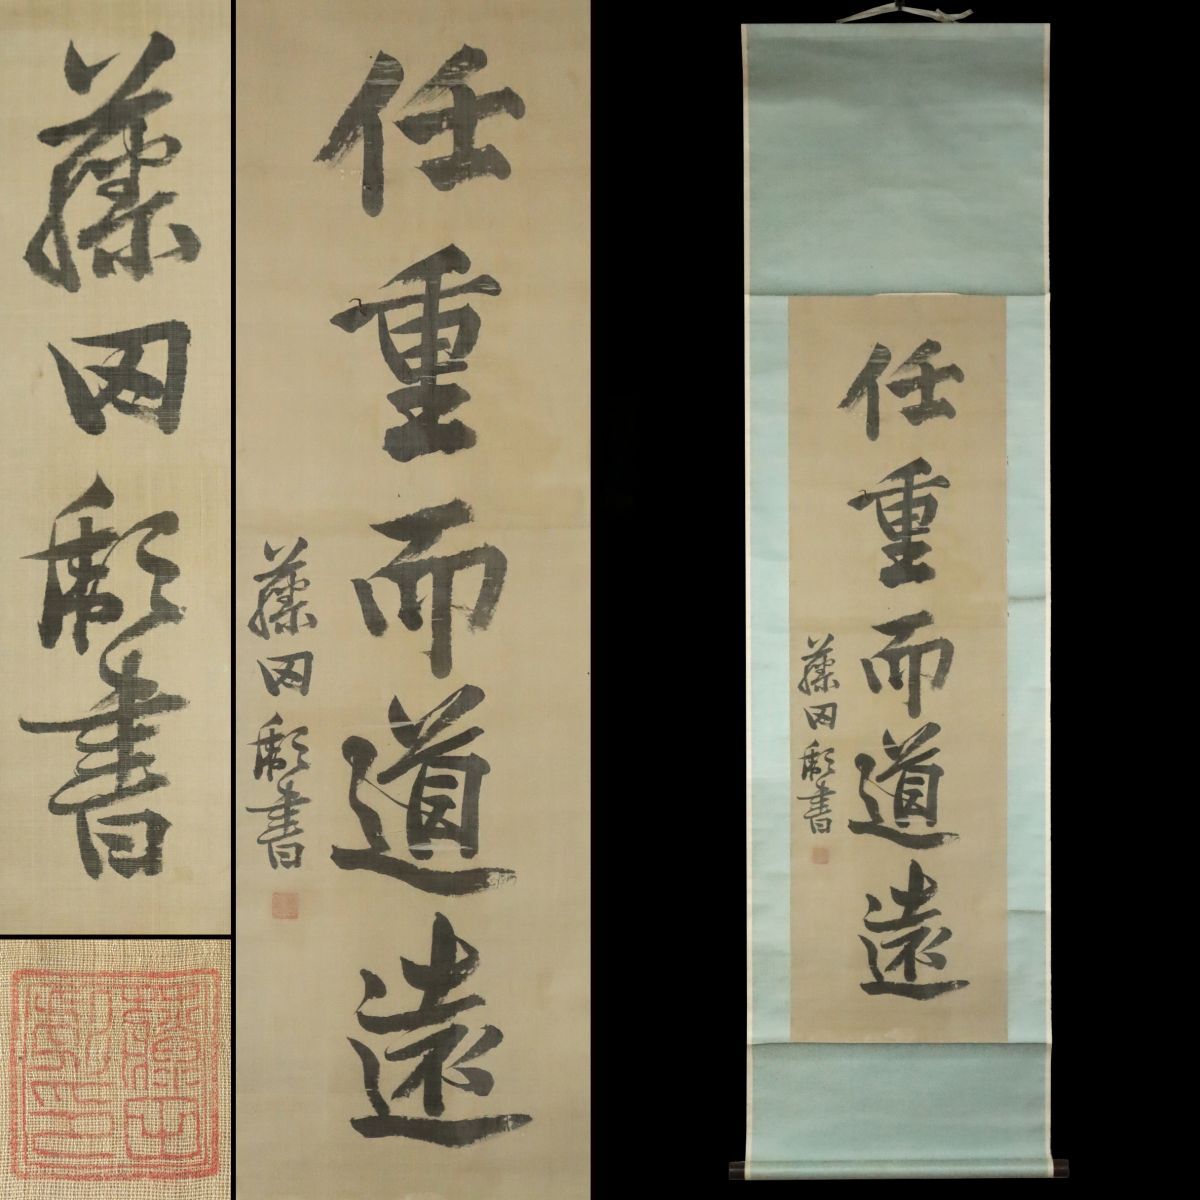 藤田彪書
任重而道遠
藤田彪書
任重而道遠
藤田彪書